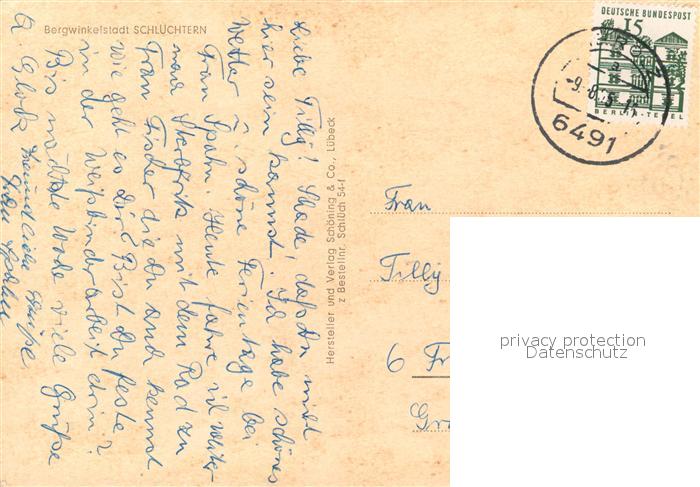 Bergwinkelstadt SCHLÜCHTERN
Liebe Tilly! Schade, daß Du nicht
hier sein kannst. Ich habe schönes
Wetter u. schöne Ferientage bei
Frau Spahn. Heute fahre ich weiter
nach mit dem Rad zu
Frau Fischer die Du auch kennst.
Wie geht es Dir? Bist Du feste
in der Weißbinderarbeit drin?
Bis nächste Woche viele Grüße
freundliche Grüße
Frau
Hersteller und Verlag Schöning & Co., Lübeck
z Bestellnr. Schlüch 54-f
DEUTSCHE BUNDESPOST
15
BERLIN-TEGEL
6491
Frau
Tilly
6 Fr
privacy protection
Datenschutz